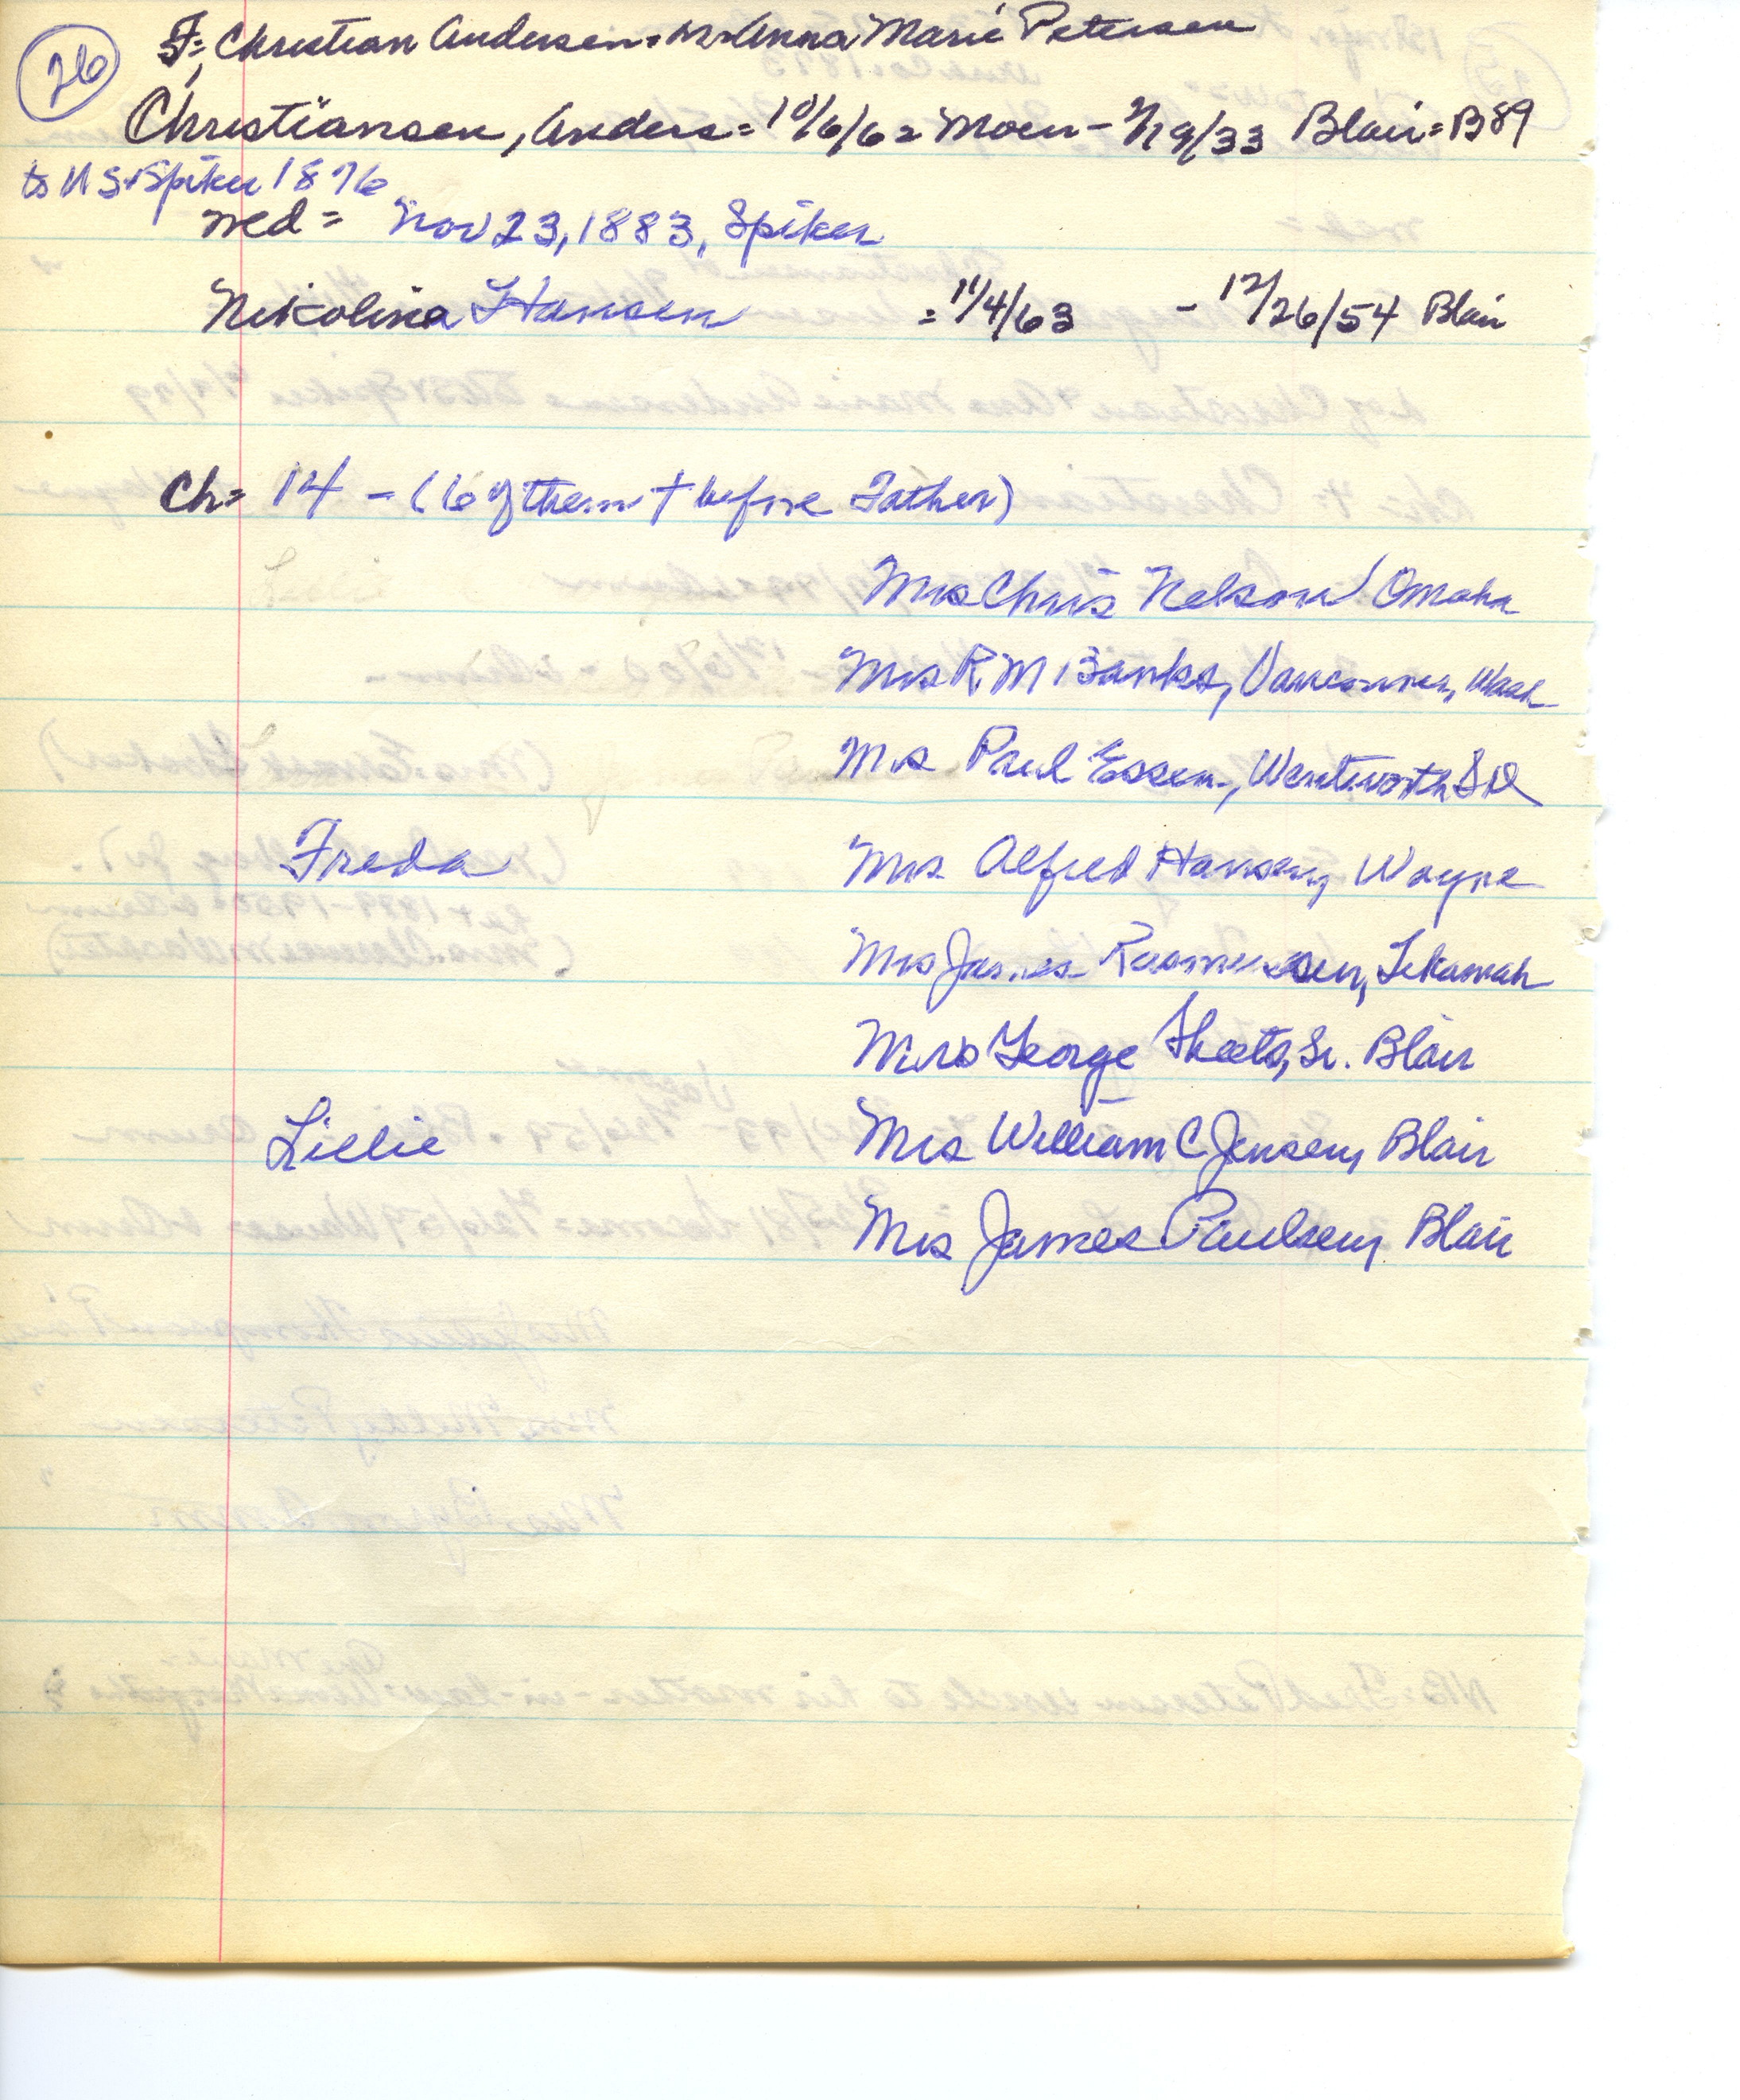 26
F= Christian Andersen = M= Anna Marie Petersen
Christiansen, Anders = 10/6/62 Moen - 2/19/33 Blair = B89
to US+Spiker 1876
wed = Nov 23, 1883, Spiker
Nikolina Hansen = 11/4/63 - 12/26/54 Blair
Ch= 14 - (6 of them † before Father)
Mrs Chris Nelson Omaha
Mrs R.M Banks, Vancouver, Wash
Mrs Paul Essen, Wentworth SD
Freda Mrs Alfred Hansen, Wayne
Mrs James Rasmussen, Tekamah
Mrs George Sheets, Sr. Blair
Lillie Mrs William C Jensen, Blair
Mrs James Paulsen, Blair